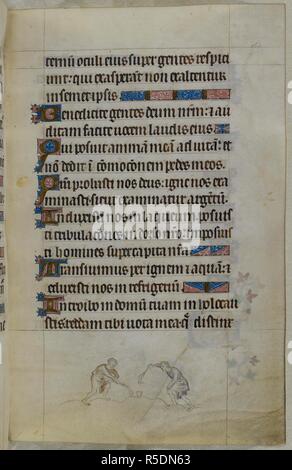 ternũ oculi eius super gentes respici
unt: qui exasperãt non exaltentur
in semetipsis
Benedicite gentes deum nr̃m: ⁊ au
ditam facite uocem laudis eius
Qui posuit animã meã ad uitam: et
nõ dedit ĩ cõmocõem pedes meos.
nos deus: igne nos exa
minasti sicut examinatur argẽtũ.
Induxisti nos in laqueũ imposuis
ti tribulacões in dorso nr̃o: imposuis
ti homines super capita nr̃a
Transiuimus per ignem ⁊ aquã: ⁊
eduxisti nos in refrigeriũ
Introibo in domũ tuam in holocau
stis: reddam tibi uota mea q̃ distinx
alamy
R5DN63